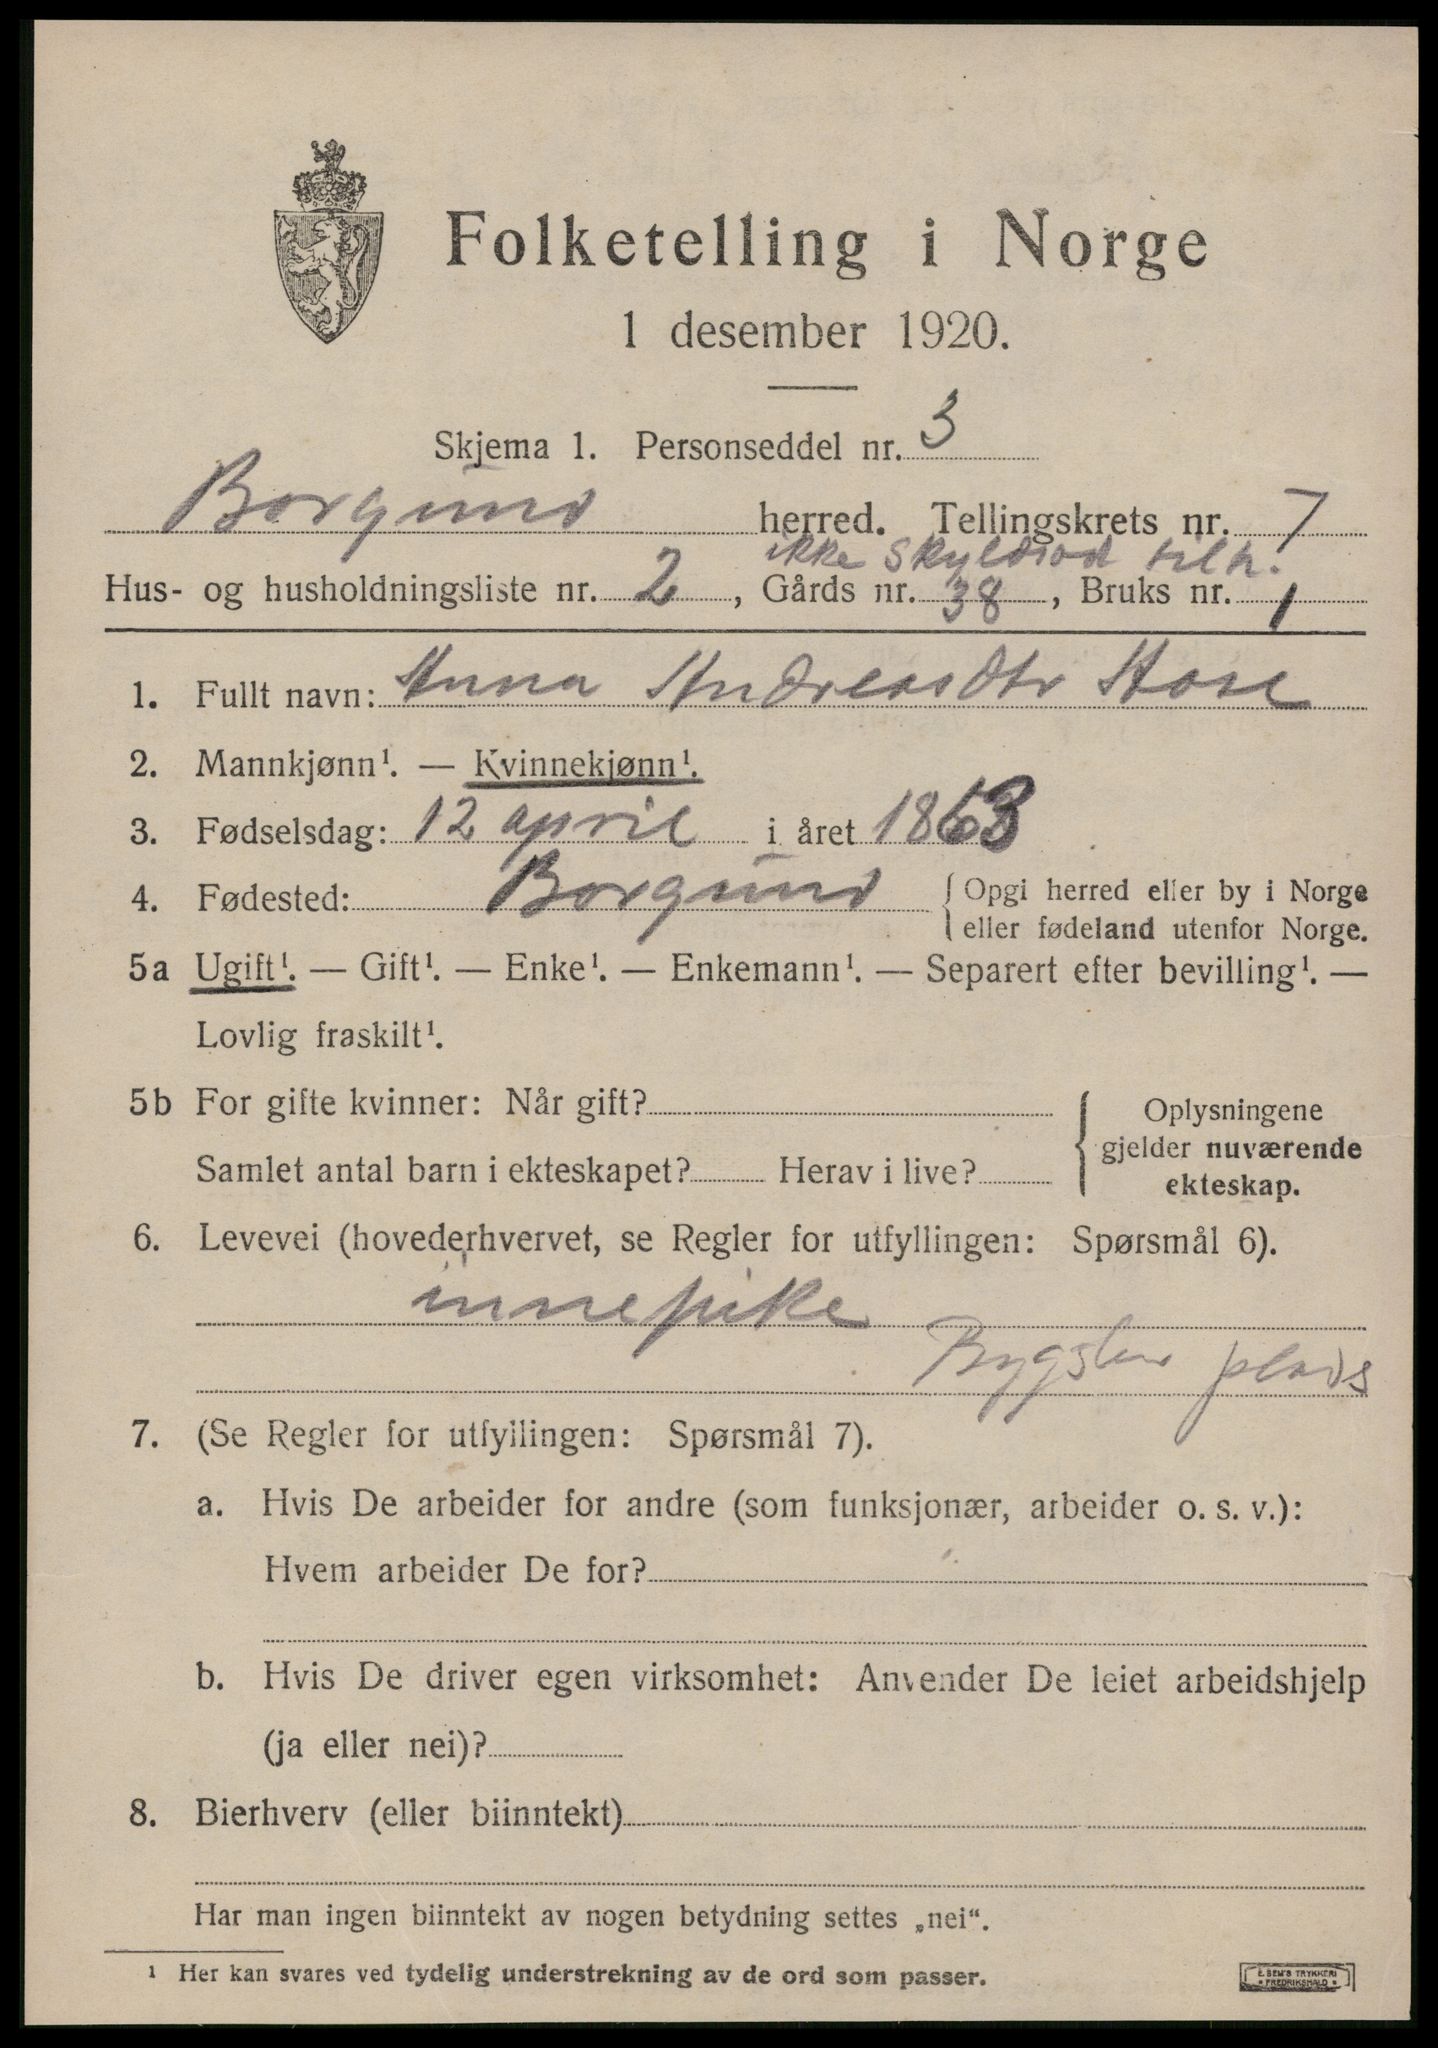 Folketelling i Norge
1 desember 1920.
Skjema 1. Personseddel nr. 3
Borgund herred. Tellingskrets nr. 7
ikke skyldsat tilh.
Hus- og husholdningsliste nr. 2, Gårds nr. 38, Bruks nr. 1
1. Fullt navn: Anna Andreasdtr Hose
2. Mannkjønn¹. — Kvinnekjønn¹.
3. Fødselsdag: 12 april i året 1863
4. Fødested: Borgund { Opgi herred eller by i Norge
eller fødeland utenfor Norge.
5a Ugift¹. — Gift¹. — Enke¹. — Enkemann¹. — Separert efter bevilling¹. —
Lovlig fraskilt¹.
5b For gifte kvinner: Når gift? { Oplysningene
gjelder nuværende
Samlet antal barn i ekteskapet? Herav i live? ekteskap.
6. Levevei (hovederhvervet, se Regler for utfyllingen: Spørsmål 6).
innepike
Bygsler plads
7. (Se Regler for utfyllingen: Spørsmål 7).
a. Hvis De arbeider for andre (som funksjonær, arbeider o. s. v.):
Hvem arbeider De for?
b. Hvis De driver egen virksomhet: Anvender De leiet arbeidshjelp
(ja eller nei)?
8. Bierhverv (eller biinntekt)
Har man ingen biinntekt av nogen betydning settes „nei“.
¹ Her kan svares ved tydelig understrekning av de ord som passer.
E. SEM'S TRYKKERI
FREDRIKSHALD